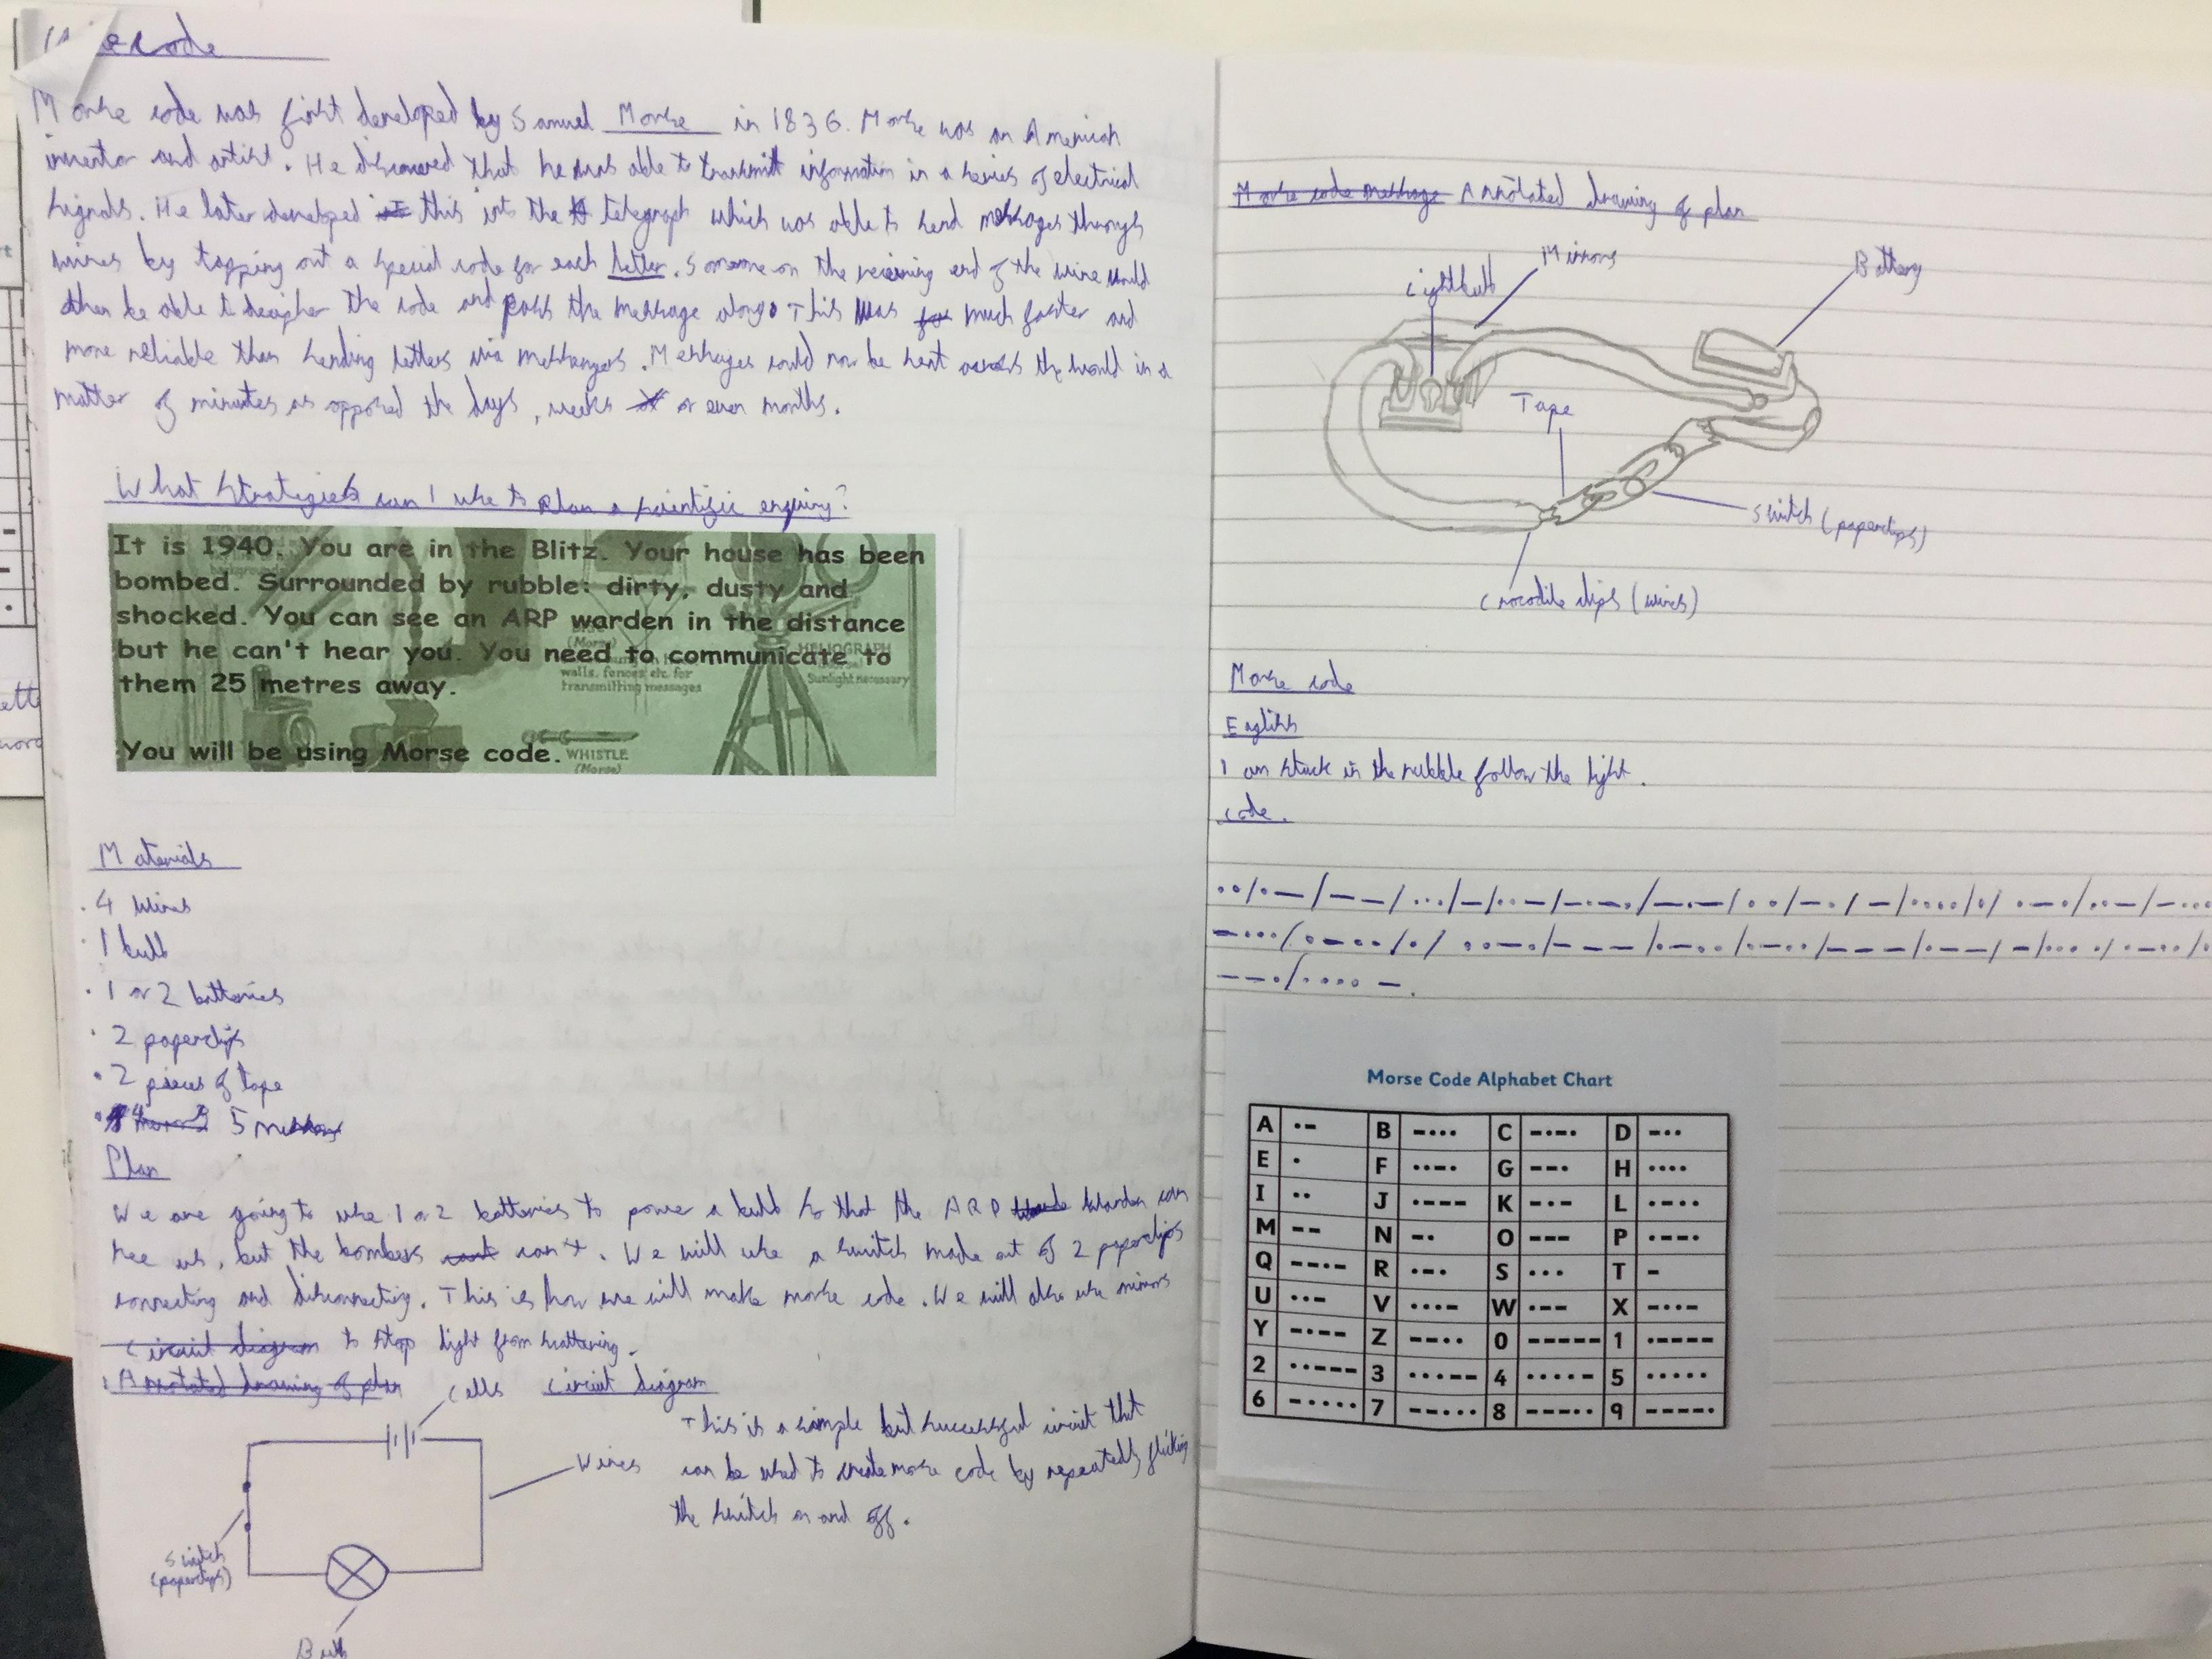 Morse code was first developed by Samuel Morse in 1836. Morse was an American
inventor and artist. He discovered that he was able to transmitt information in a series of electrical
signals. He later developed this into the telegraph which was able to send messages through
wires by tapping out a special code for each letter. Someone on the recieving end of the wire would
then be able to decipher the code and pass the message along. This was much faster and
more reliable than sending letters via messengers. Messages could now be sent across the world in a
matter of minutes as opposed the days, weeks or even months.
What strategies can I use to plan a scientific enquiry?
It is 1940. You are in the Blitz. Your house has been
bombed. Surrounded by rubble: dirty, dusty and
shocked. You can see an ARP warden in the distance
but he can't hear you. You need to communicate to
them 25 metres away.
You will be using Morse code.
(Morse)
walls, fences etc. for
transmitting messages
HELIOGRAPH
Sunlight necessary
WHISTLE
(Morse)
Materials
· 4 wires
· 1 bulb
· 1 or 2 batteries
· 2 paperclips
· 2 pieces of tape
· 5
Plan
We are going to use 1 or 2 batteries to power a bulb so that the ARP warden can
see us, but the bombers can't. We will use a switch made out of 2 paperclips
connecting and disconnecting. This is how we will make morse code. We will also use mirrors
circuit diagram to stop light from scattering.
Annotated drawing of plan Cells Circuit diagram
This is a simple but successful circuit that
Wires can be used to create morse code by repeatedly flicking
the switch on and off.
Switch
(paperclips)
Bulb
Morse code message Annotated drawing of plan
Lightbulb Mirrors Battery
Tape
Switch (paperclips)
Crocodile clips (wires)
Morse code
English
I am stuck in the rubble follow the light.
Code.
··/·—/——/···/—/··—/—·—·/—·—/··/—·/—/····/·/ ·—·/··—/—···
—···/·—··/·/ ··—·/———/·—··/·—··/———/·——/—/····/·/·—··/·
——·/···· —.
Morse Code Alphabet Chart
A ·- B -··· C -·-· D -··
E · F ··-· G --· H ····
I ·· J ·--- K -·- L ·-··
M -- N -· O --- P ·--·
Q --·- R ·-· S ··· T -
U ··- V ···- W ·-- X -··-
Y -·-- Z --·· 0 ----- 1 ·----
2 ··--- 3 ···-- 4 ····- 5 ·····
6 -···· 7 --··· 8 ---·· 9 ----·